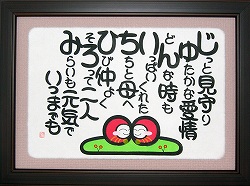 じっと見守り
ゆたかな愛情
どんな時も
いっぱいくれた
ちちと母へ
ひび仲よく
そろって二人
みらいも元気で
いつまでも